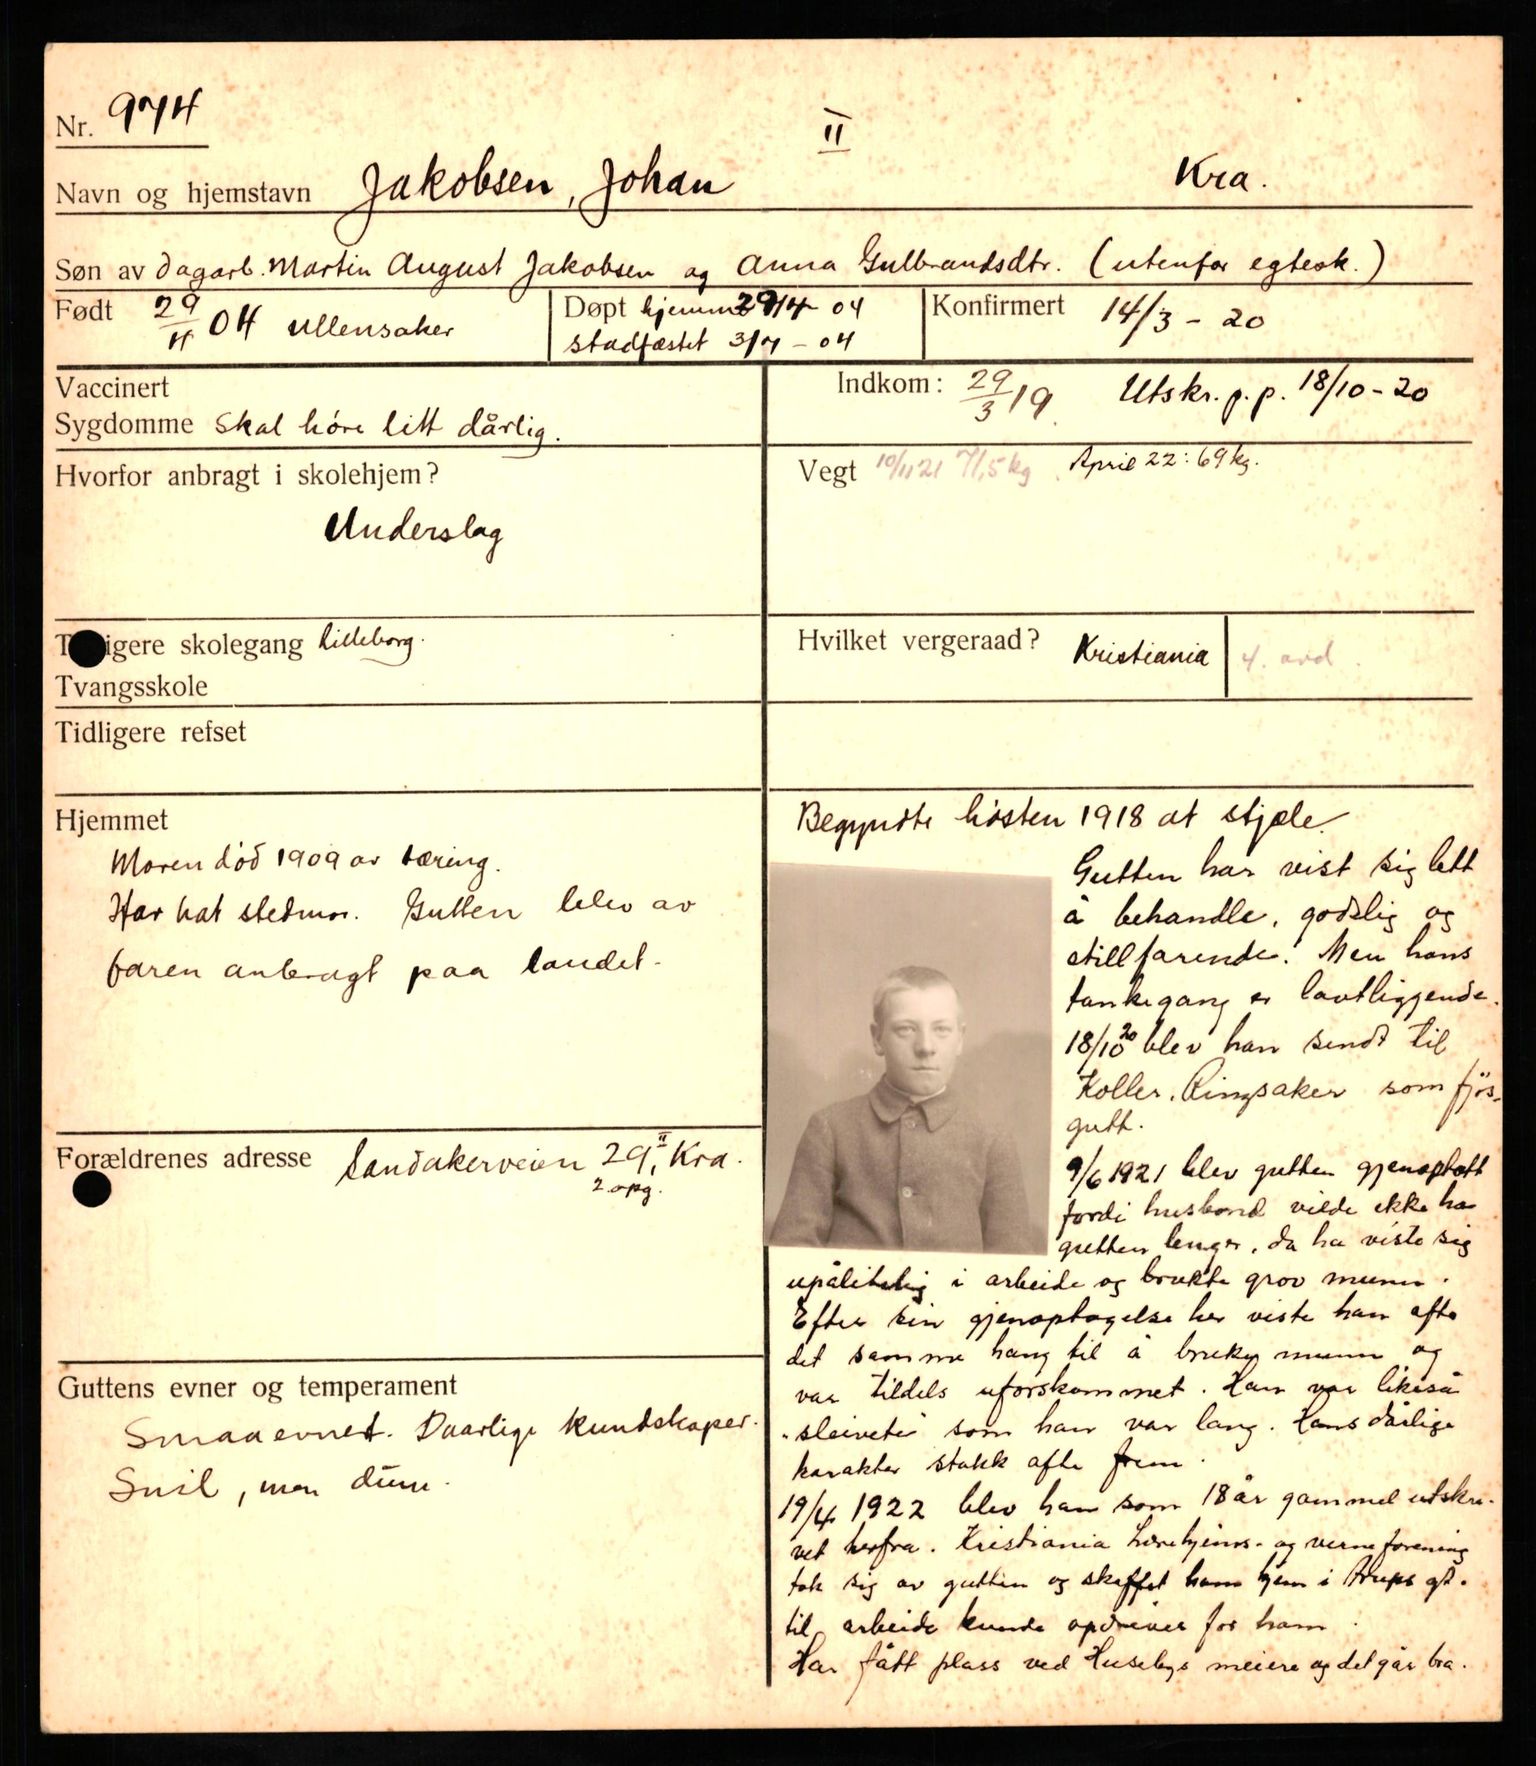 Nr. 974
II
Navn og hjemstavn Jakobsen, Johan Kra.
Søn av dagarb. Martin August Jakobsen og Anna Gulbrandsdtr. (utenfor egtesk.)
Født 29/4 04 Ullensaker
Døpt hjemme 29/4 04
stadfæstet 3/7 - 04
Konfirmert 14/3 - 20
Vaccinert
Sygdomme Skal höre litt dårlig.
Indkom: 29/3 19. Utskr. p. p. 18/10 - 20
Hvorfor anbragt i skolehjem?
Underslag
Vegt 10/11 21 71,5 kg. April 22: 69 kg.
igere skolegang Lilleborg.
Tvangsskole
Hvilket vergeraad? Kristiania 4. avd.
Tidligere refset
Hjemmet
Moren död 1909 av tæring.
Har hat stedmor. Gutten blev av
faren anbragt paa landet.
Forældrenes adresse Sandakerveien 29, II Kra.
2 opg.
Guttens evner og temperament
Smaa evner. Daarlige kundskaper.
Snil, men dum.
Begyndte hösten 1918 at stjæle.
Gutten har vist sig lett
å behandle, godslig og
stillfarende. Men hans
tankegang er lavtliggende.
18/10 20 blev han sendt til
Koller, Ringsaker som fjös-
gutt.
9/6 1921 blev gutten gjenoptatt
fordi husbond vilde ikke ha
gutten lenger, da ha viste sig
upålitelig i arbeide og brukte grov munn.
Efter sin gjenoptagelse her viste han ofte
det samme hang til å bruke munn og
var tildels uforskammet. Han var likeså
"sleivete" som han var lang. Hans dårlige
karakter stakk ofte frem.
19/4 1922 blev han som 18 år gammel utskre-
vet herfra. Kristiania Lærehjems- og verneforening
tok sig av gutten og skaffet ham hjem i gt.
til arbeide kunde opdrives for ham.
Har fått plass ved Husebys meieri og det går bra.